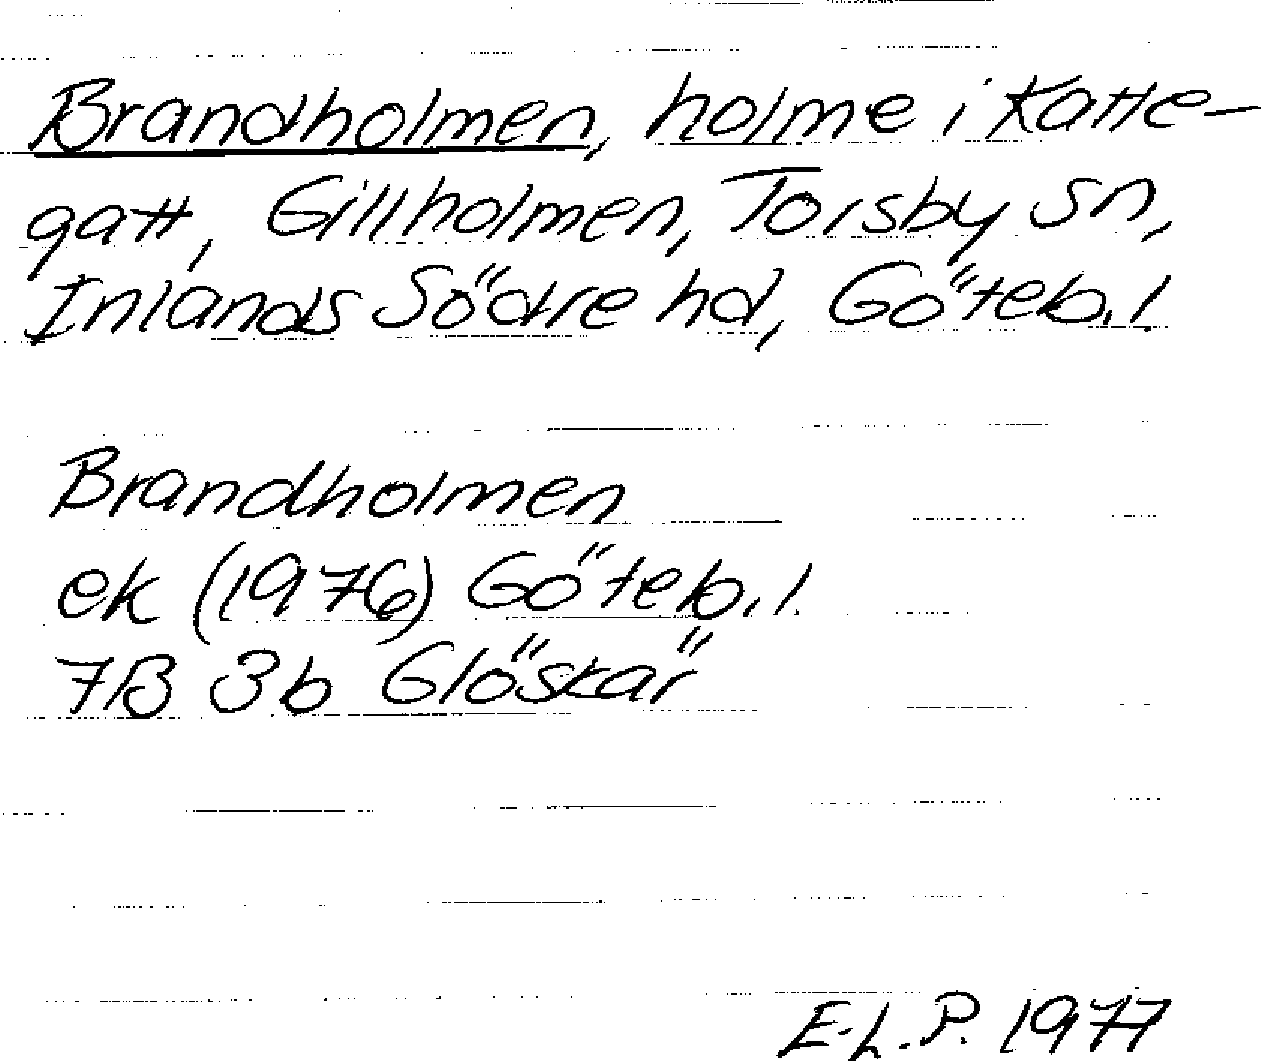 Brandholmen, holme i Katte-
gatt, Gillholmen, Torsby sn,
Inlands Södre hd, Göteb. l.
Brandholmen
ek (1976) Göteb. l.
7B 3b Glöskär
E.L.P. 1977